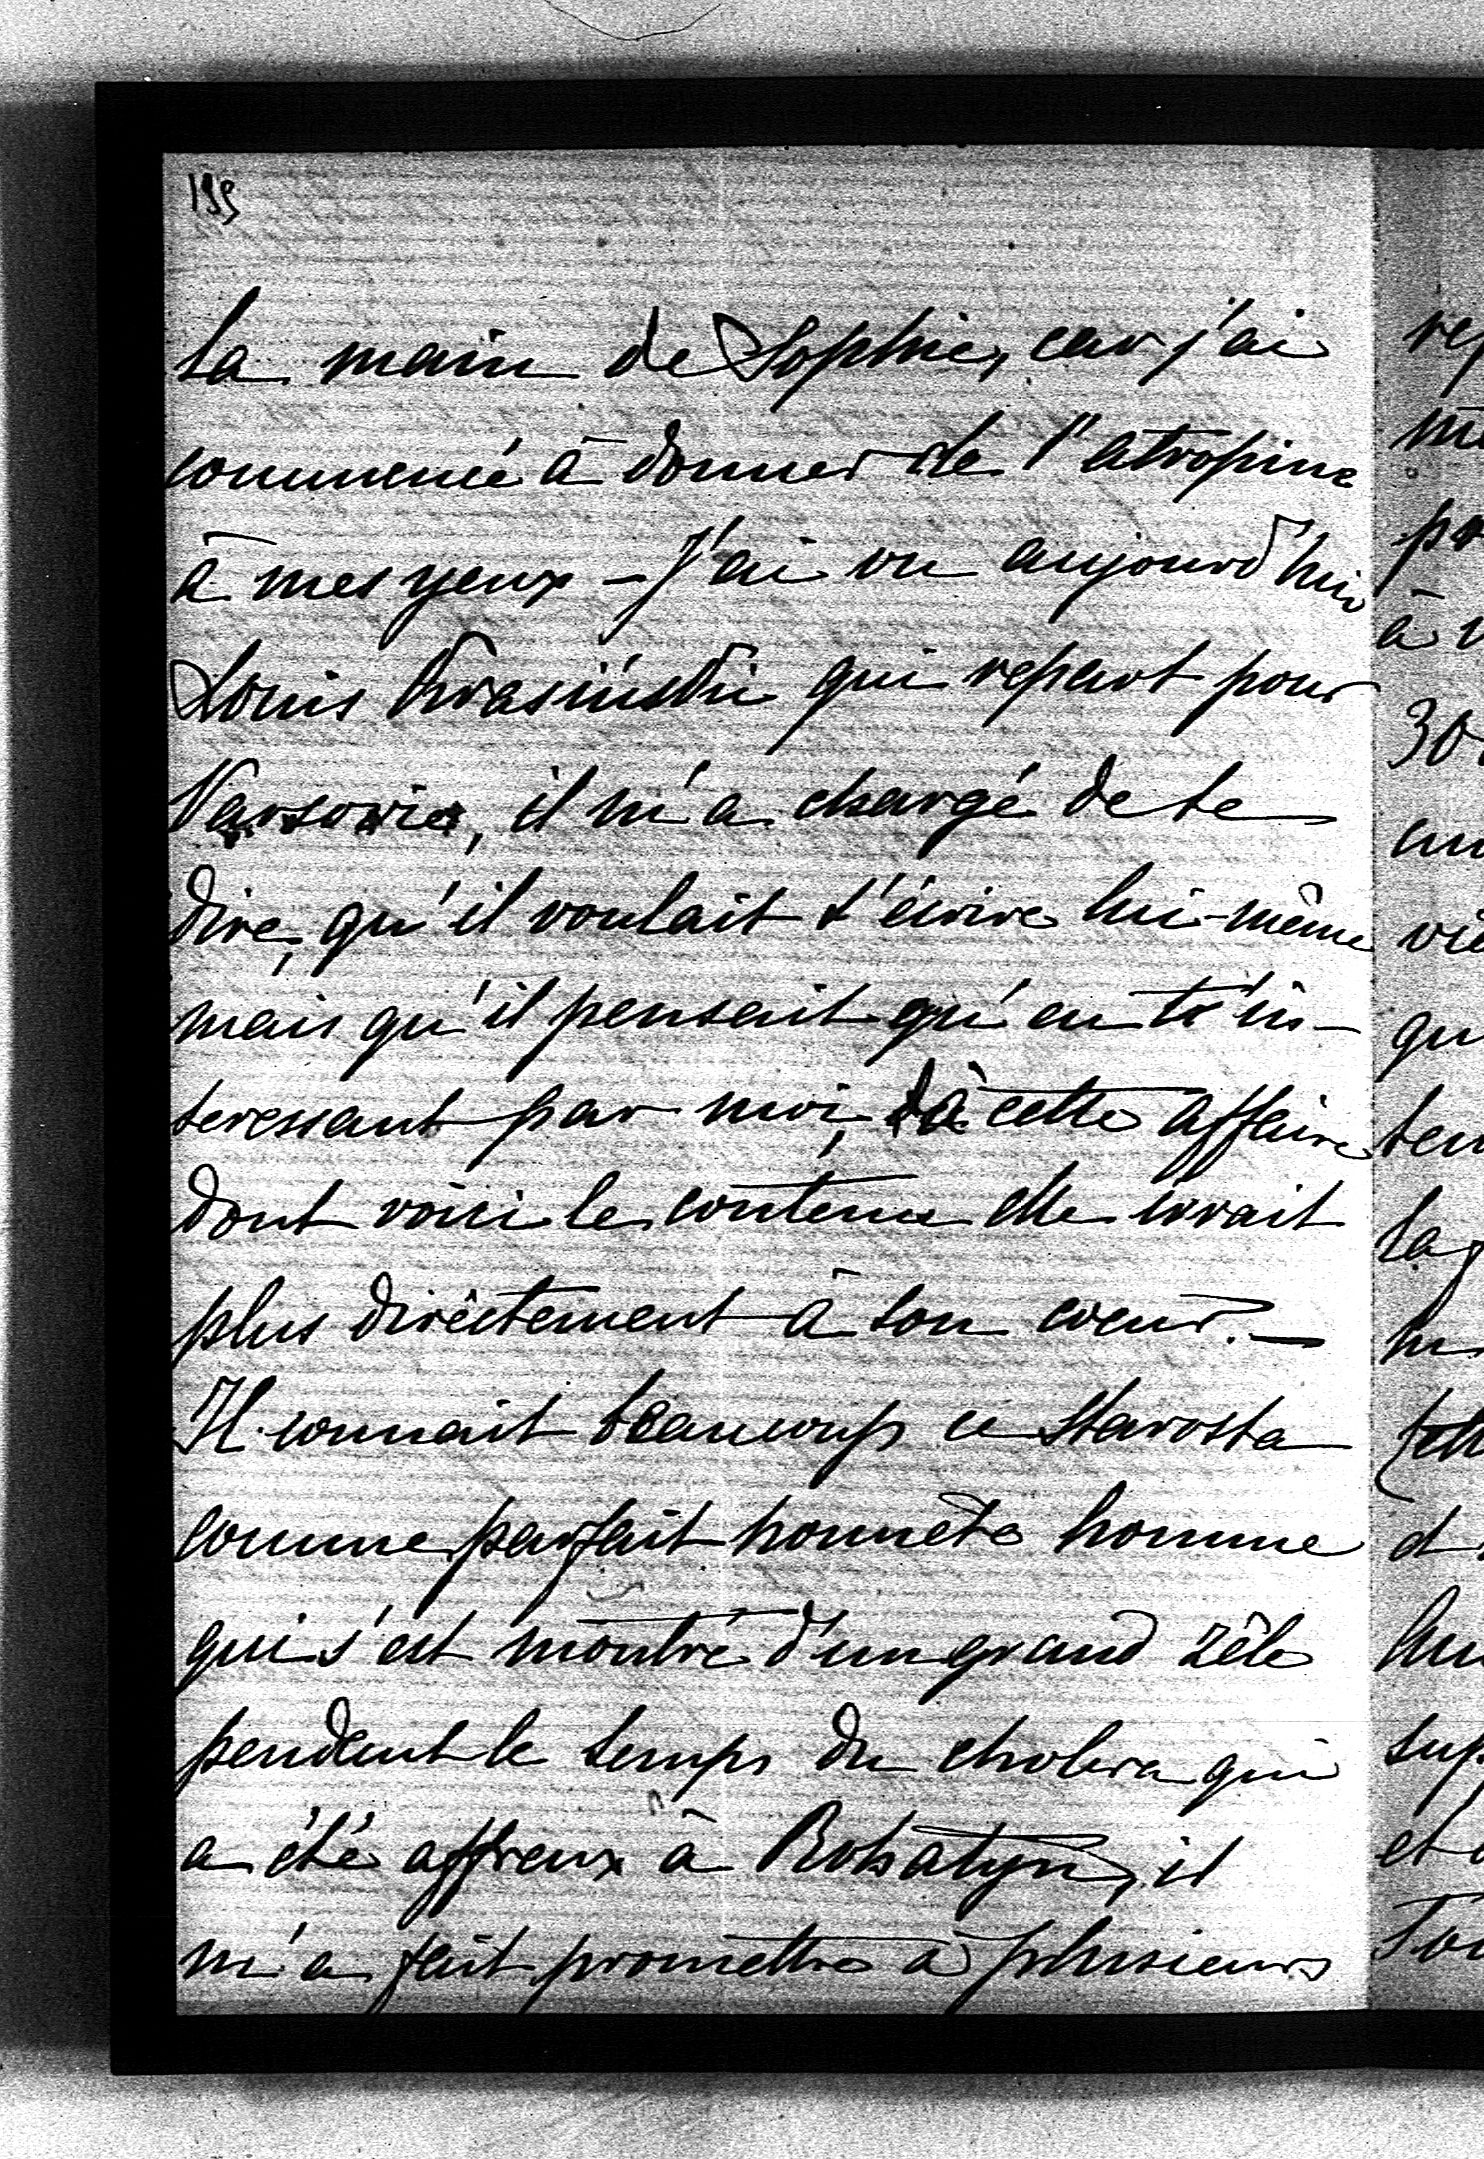 199
la main de Sophie, car j'ai
commencé à donner de l'atropine
à mes yeux – J'ai vu aujourd'hui
Louis Krasiński qui repart pour
Varsovie, il m'a chargé de te
dire, qu'il voulait t'écrire lui-même
mais qu'il pensait qu'en t'in-
teressant par moi, à cette affaire
dont voici le contenu elle irrait
plus directement à ton coeur. –
Il connait beaucoup ce Starosta
comme parfait honnête homme
qui s'est montré d'un grand zêle
pendant le temps du cholera qui
a été affreux à Rohatyn, il
m'a fait promettre à plusieurs